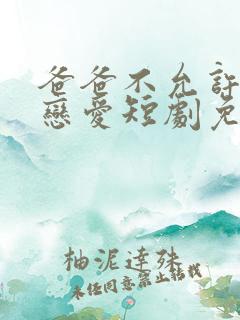 爸爸不允許
戀愛短劇免
柚泥達殊
未經同意禁止轉載